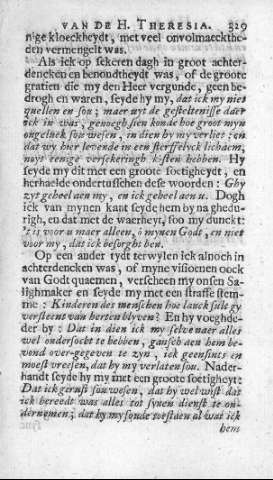 VAN DE H. THERESIA. 329
nige kloeckheydt, met veel onvolmaecktheden
vermengelt was.
Als ick op sekeren dagh in groot achter-
dencken en benoudtheydt was, of de groote
gratien die my den Heer vergunde, geen be-
drogh en waren, seyde hy my, dat ick my niet
quellen en sou; maer uyt de gesteltenisse daer
ick in was; genoegh sien konde hoe groot myn
ongeluck sou wesen, in dien hy my verliet; en
dat wy hier levende in een sterffelyck lichaem,
noyt eenige versekeringh konsten hebben. Hy
seyde my dit met een groote soetigheydt, en
herhaelde ondertusschen dese woorden: Ghy
zyt geheel aen my, en ick geheel aen u. Dogh
ick van mynen kant seyde hem by na ghedu-
righ, en dat met de waerheyt, soo my dunckt:
't is voor u maer alleen, ô mynen Godt, en niet
voor my, dat ick besorght ben.
Op een ander tydt terwylen ick alnoch in
achterdencken was, of myne visioenen oock
van Godt quaemen, verscheen my onsen Sa-
lighmaker en seyde my met een straffe stem-
me: Kinderen des menschen hoe lanck sult gy
versteent van herten blyven? En hy voeghde-
der by: Dat in dien ick my selve naer alles
wel ondersocht te hebben, gansch aen hem be-
vond over-gegeven te zyn, ick geensints en
moest vreesen, dat hy my verlaten sou. Nader-
handt seyde hy my met een groote soetigheyt:
Dat ick gerust sou wesen, dat hy wel wist dat
ick bereedt was alles tot synen dienst te on-
dernemen; dat hy my soude toestaen al wat ick
hem